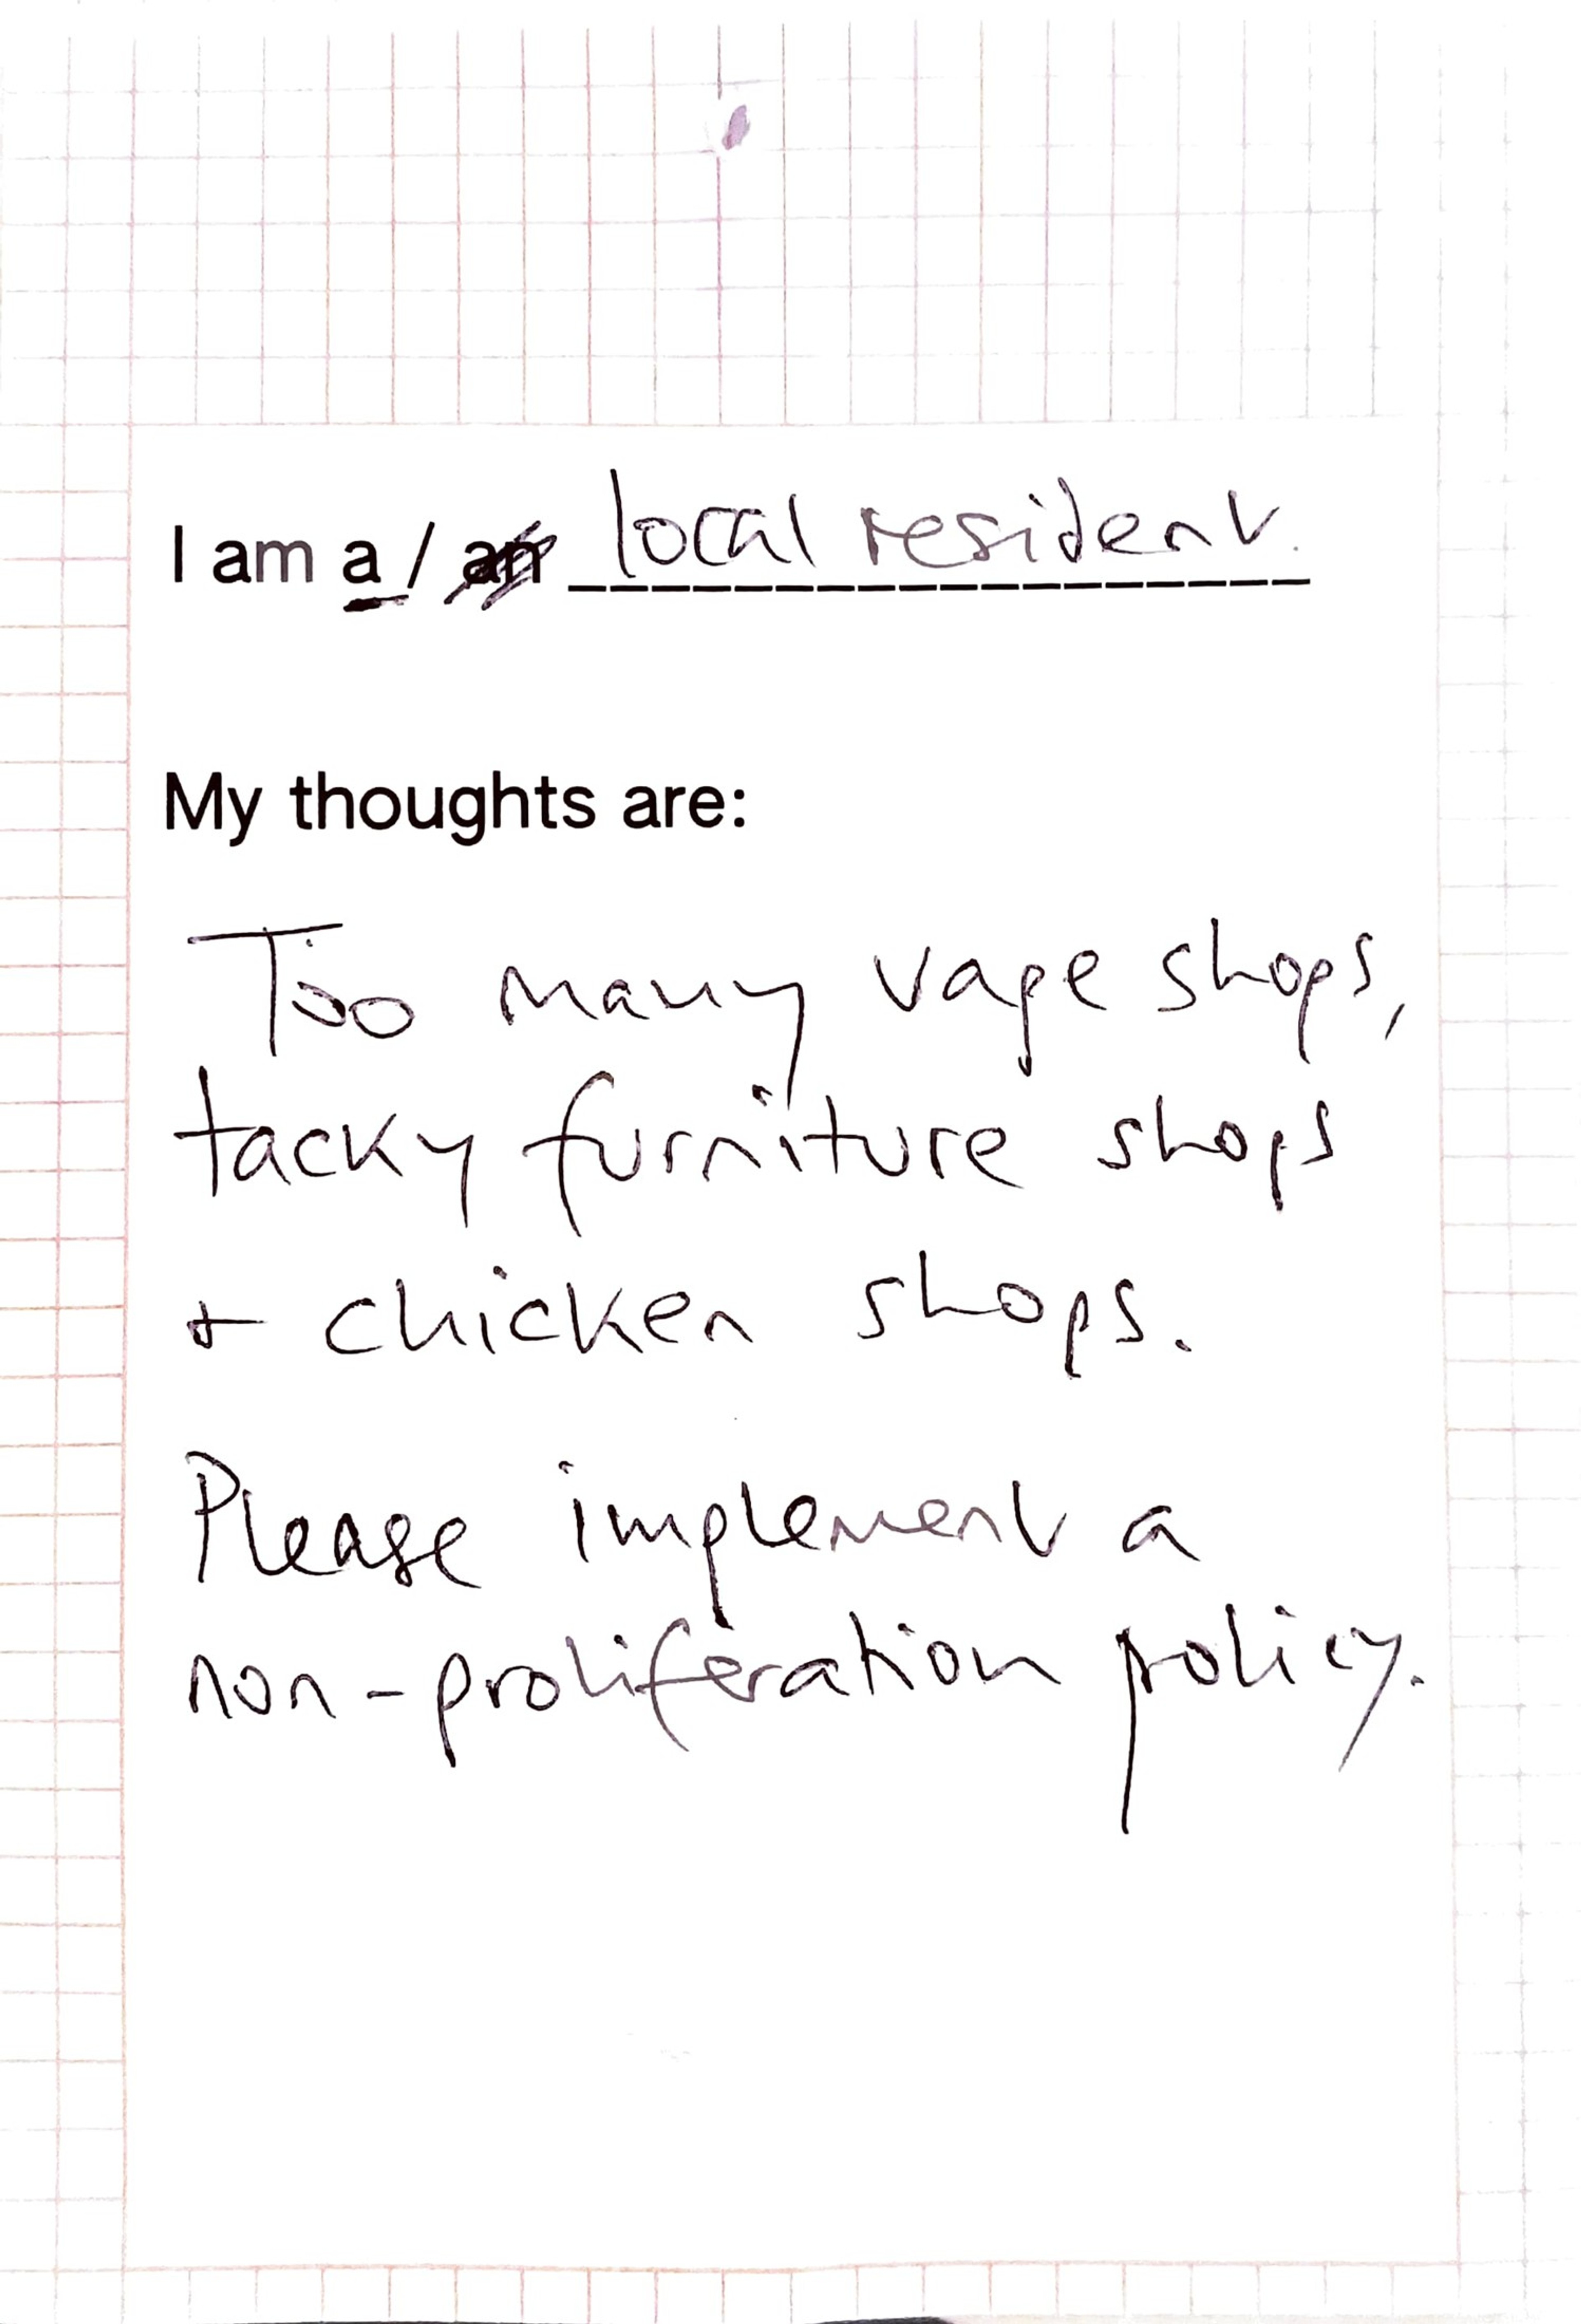 I am a / an local resident.
My thoughts are:
Too many vape shops,
tacky furniture shops
+ chicken shops.
Please implement a
non-proliferation policy.